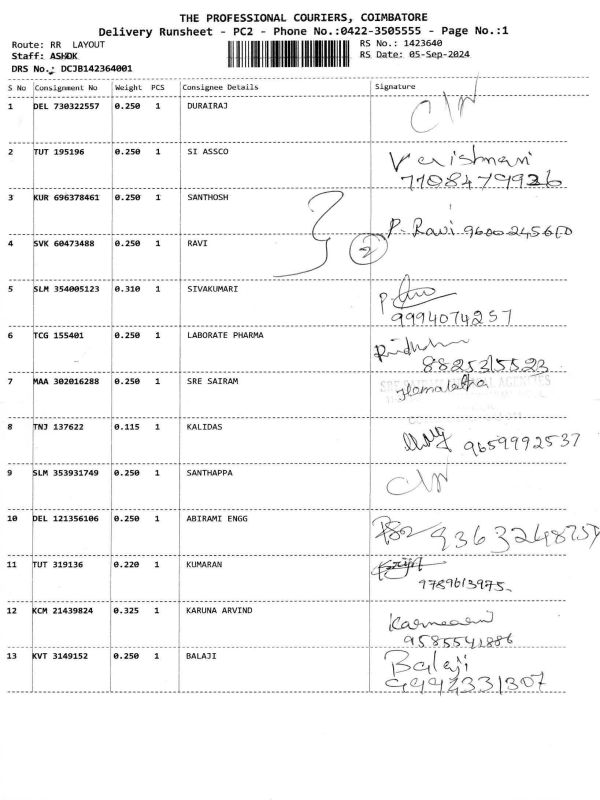 THE PROFESSIONAL COURIERS, COIMBATORE
Delivery Runsheet - PC2 - Phone No.:0422-3505555 - Page No.:1
Route: RR LAYOUT
RS No.: 1423640
Staff: ASHOK
RS Date: 05-Sep-2024
DRS No.: DCJB142364001
S No Consignment No Weight PCS Consignee Details Signature
1 DEL 730322557 0.250 1 DURAIRAJ
2 TUT 195196 0.250 1 SI ASSCO
7708479926
3 KUR 696378461 0.250 1 SANTHOSH
P. Ravi 9600245660
4 SVK 60473488 0.250 1 RAVI
2
5 SLM 354005123 0.310 1 SIVAKUMARI
9994074257
6 TCG 155401 0.250 1 LABORATE PHARMA
8825315523
7 MAA 302016288 0.250 1 SRE SAIRAM
8 TNJ 137622 0.115 1 KALIDAS
9659992537
9 SLM 353931749 0.250 1 SANTHAPPA
10 DEL 121356106 0.250 1 ABIRAMI ENGG
11 TUT 319136 0.220 1 KUMARAN
9789613975.
12 KCM 21439824 0.325 1 KARUNA ARVIND
9585541886
13 KVT 3149152 0.250 1 BALAJI
Balaji
9942331307